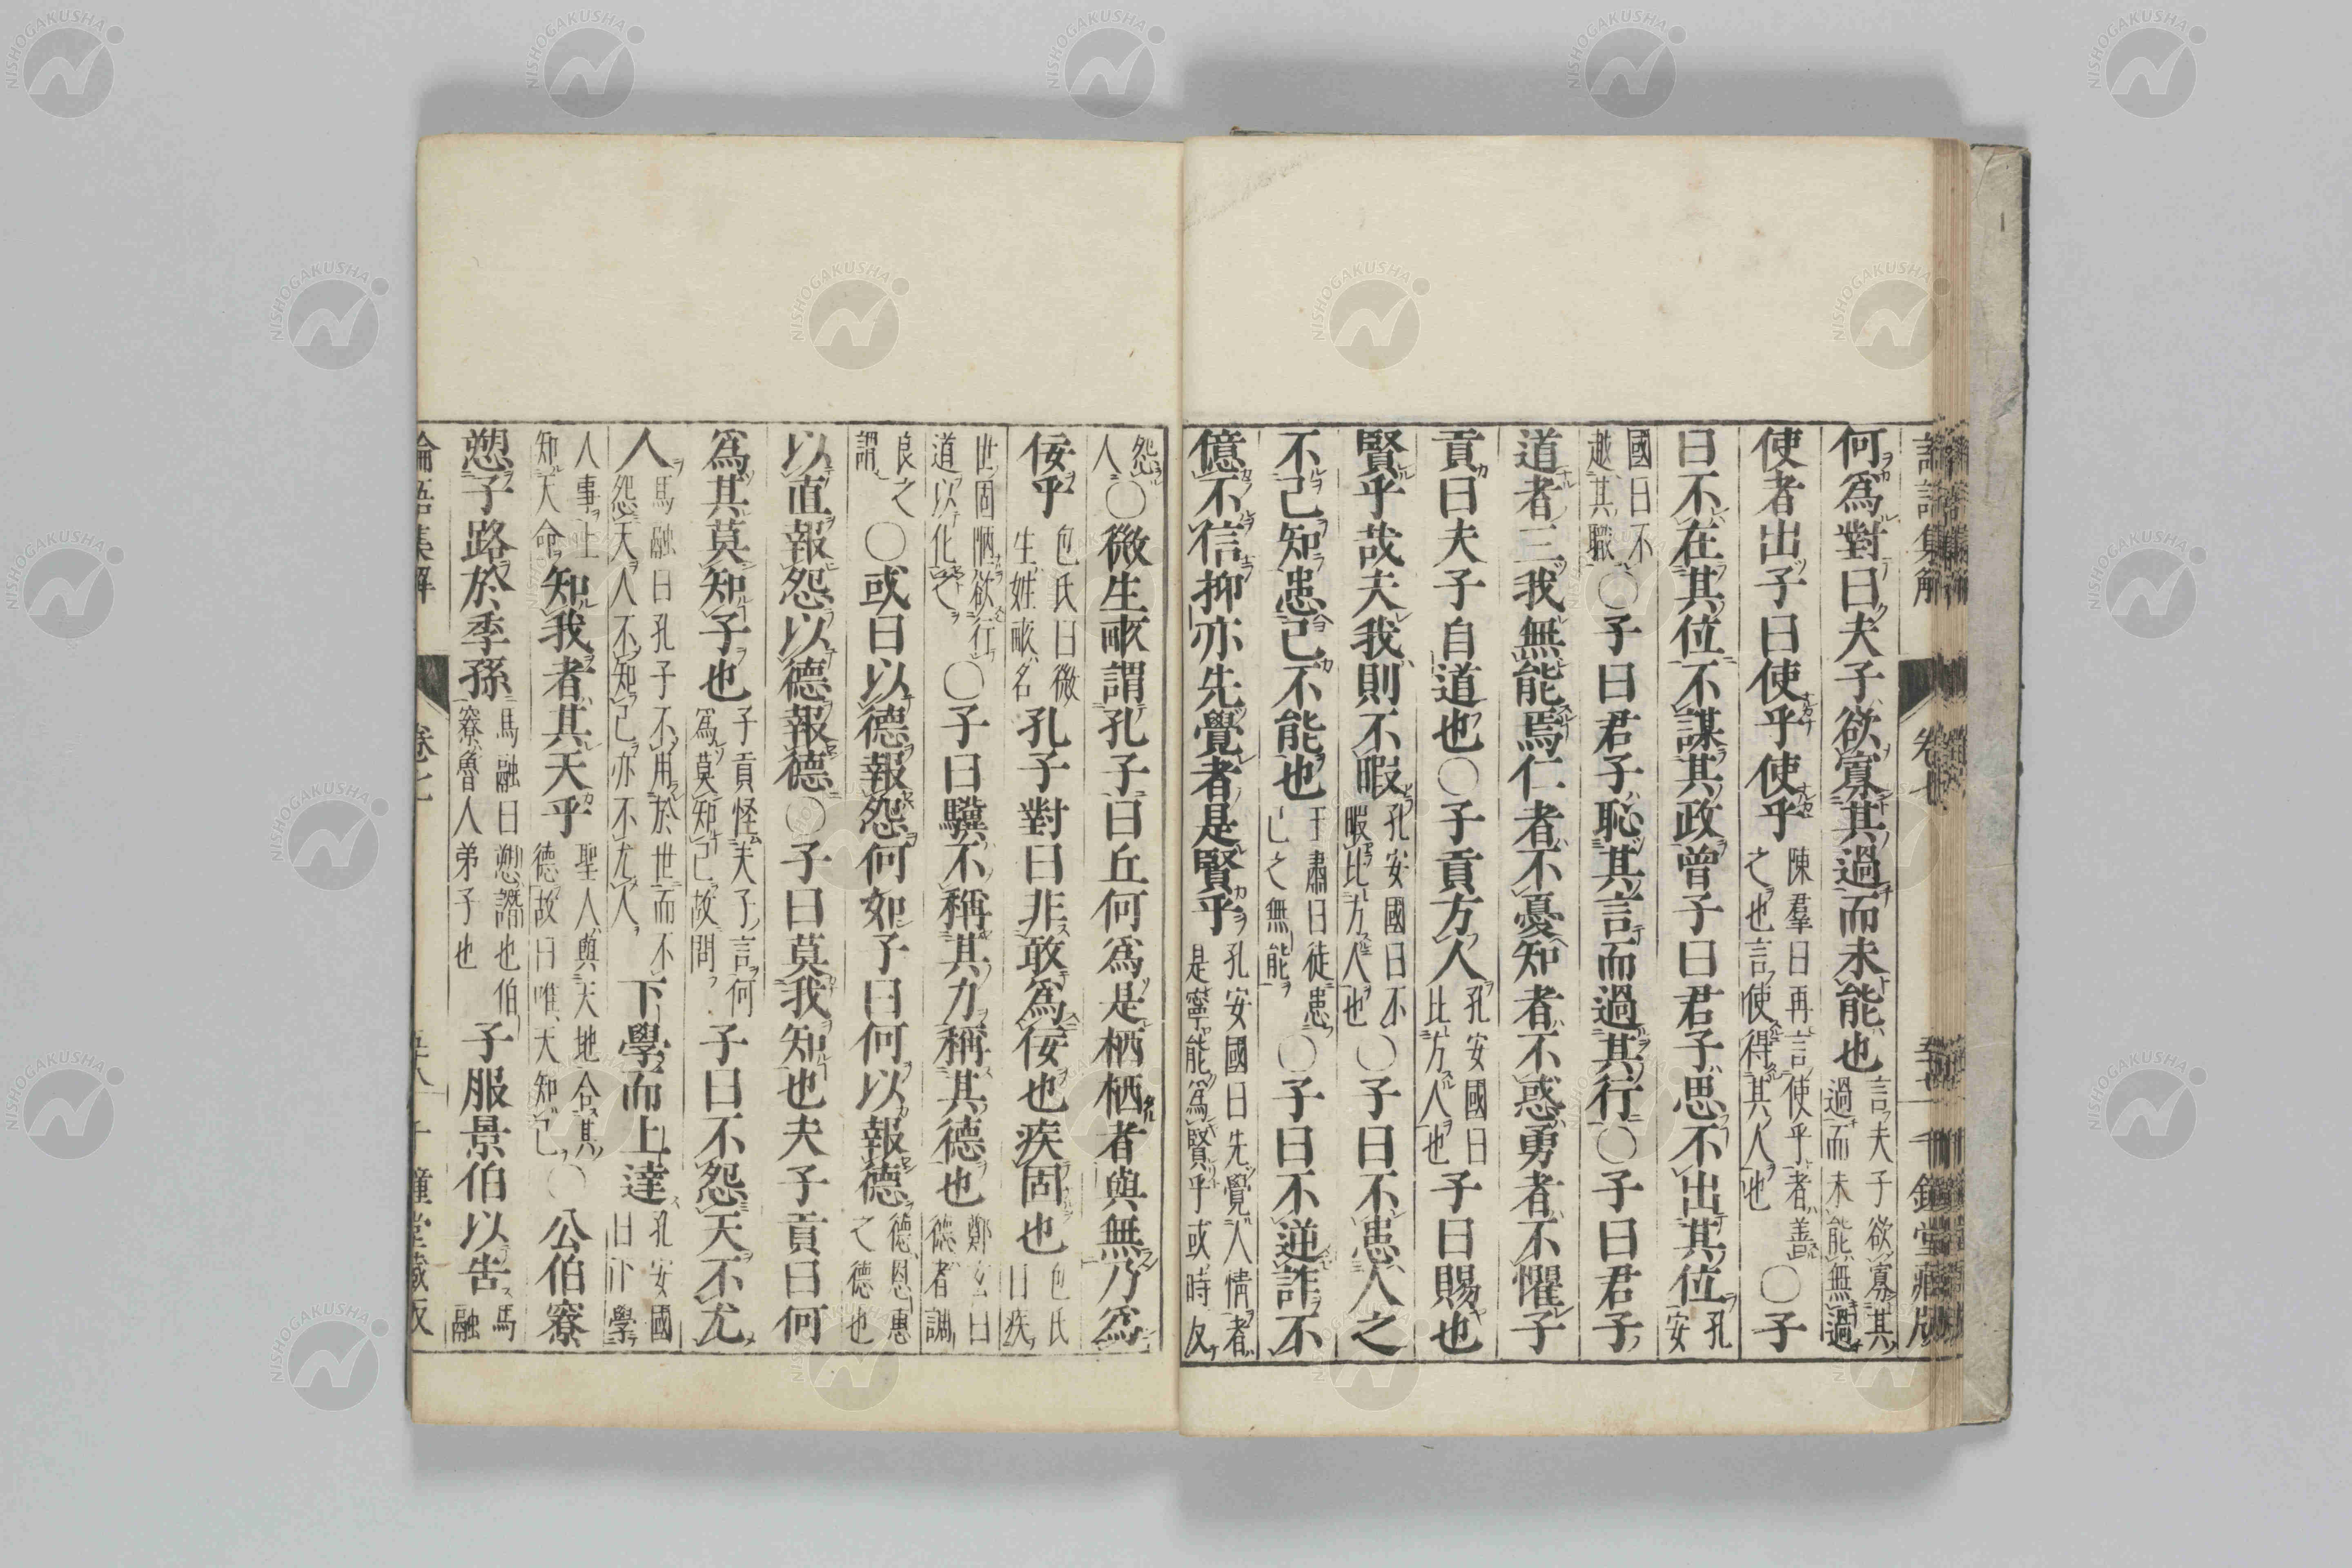 論語集解 卷七 千鍾堂藏版
何爲對曰夫子欲寡其過而未能也言夫子欲寡其過而未能無過
使者出子曰使乎使乎陳羣曰再言使乎者善之也言使得其人也〇子
曰不在其位不謀其政曾子曰君子思不出其位孔安
國曰不越其職〇子曰君子恥其言而過其行〇子曰君子
道者三我無能焉仁者不憂知者不惑勇者不懼子
貢曰夫子自道也〇子貢方人孔安國曰比方人也子曰賜也
賢乎哉夫我則不暇孔安國曰不暇比方人也〇子曰不患人之
不己知患己不能也王肅曰徒患己之無能〇子曰不逆詐不
億不信抑亦先覺者是賢乎孔安國曰先覺人情者是寧能爲賢乎或時反
怨人〇微生畝謂孔子曰丘何爲是栖栖者與無乃爲
佞乎包氏曰微生姓畝名孔子對曰非敢爲佞也疾固也包氏曰疾
世固陋欲行道以化之〇子曰驥不稱其力稱其德也鄭玄曰德者調
良之謂〇或曰以德報怨何如子曰何以報德德恩惠之德也
以直報怨以德報德〇子曰莫我知也夫子貢曰何
爲其莫知子也子貢怪夫子言何爲莫知己故問子曰不怨天不尤
人馬融曰孔子不用於世而不怨天人不知己亦不尤人下學而上達孔安國曰下學
人事上知天命知我者其天乎聖人與天地合其德故曰唯天知己〇公伯寮
愬子路於季孫馬融曰愬譖也伯寮魯人弟子也子服景伯以告馬融
論語集解 卷七 千鍾堂藏版